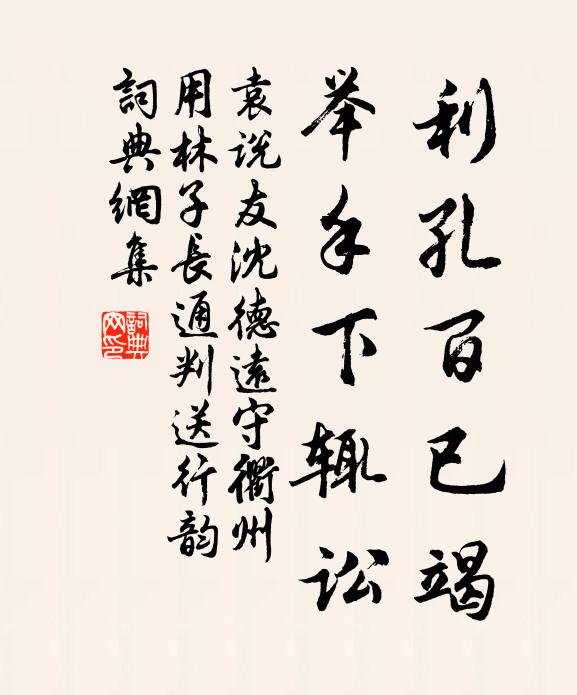 利孔百已竭
举手下辄讼
袁说友沈德遠守衢州
用林子長通判送行韵
詞典網集
詞典網印